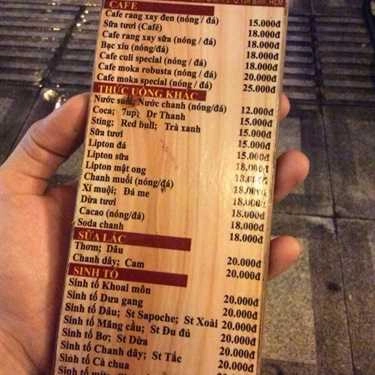 CAFE
Cafe rang xay đen (nóng / đá) 15.000đ
Sữa tươi (Café) 18.000đ
Cafe rang xay sữa (nóng / đá) 18.000đ
Bạc xỉu (nóng/đá) 18.000đ
Cafe culi special (nóng / đá) 18.000đ
Cafe moka robusta (nóng / đá) 20.000đ
Cafe moka special (nóng/đá) 25.000đ
THỨC UỐNG KHÁC
Nước suối, Nước chanh (nóng/đá) 12.000đ
Coca; 7up; Dr Thanh 15.000đ
Sting; Red bull; Trà xanh 15.000đ
Sữa tươi 15.000đ
Lipton đá 15.000đ
Lipton sữa 18.000đ
Lipton mật ong 18.000đ
Chanh muối (nóng/đá) 18.000đ
Xí muội; Đá me 18.000đ
Dừa tươi 18.000đ
Cacao (nóng/đá) 18.000đ
Soda chanh 18.000đ
SỮA LẮC
Thơm; Dâu 20.000đ
Chanh dây; Cam 20.000đ
SINH TỐ
Sinh tố Khoai môn 20.000đ
Sinh tố Dưa gang 20.000đ
Sinh tố Dâu; St Sapoche; St Xoài 20.000đ
Sinh tố Mãng cầu; St Đu đủ 20.000đ
Sinh tố Bơ; St Dừa 20.000đ
Sinh tố Chanh dây; St Tắc 20.000đ
Sinh tố Cà chua 20.000đ